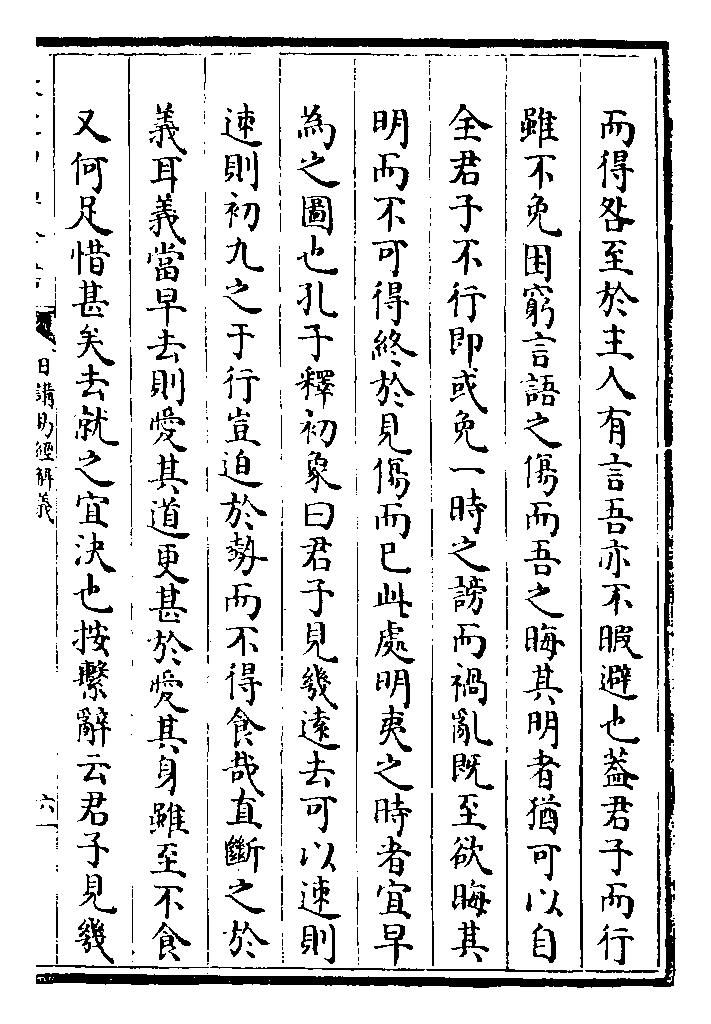 而得咎至於主人有言吾亦不暇避也蓋君子而行
雖不免困窮言語之傷而吾之晦其明者猶可以自
全君子不行即或免一時之謗而禍亂既至欲晦其
明而不可得終於見傷而已此處明夷之時者宜早
為之圖也孔子釋初象曰君子見幾遠去可以速則
速則初九之于行豈迫於勢而不得食哉直斷之於
義耳義當早去則愛其道更甚於愛其身雖至不食
又何足惜甚矣去就之宜決也按繫辭云君子見幾
日講易經解義
六